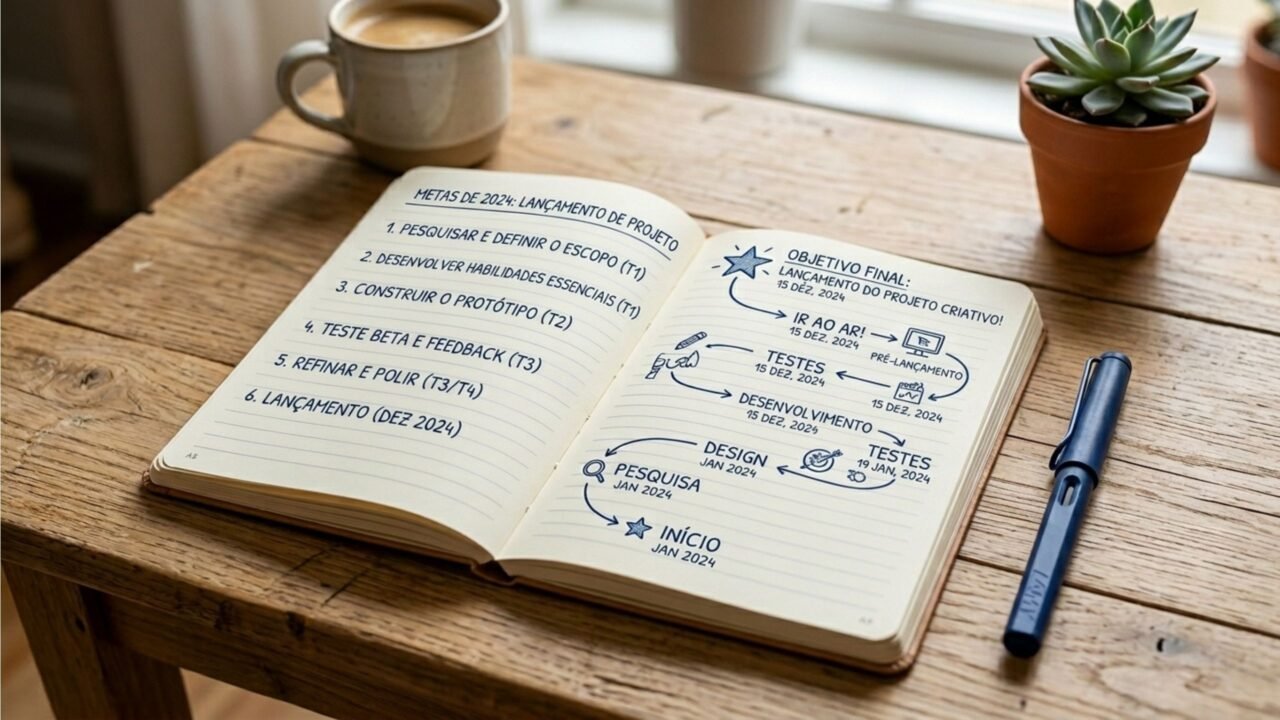 METAS DE 2024: LANÇAMENTO DE PROJETO
1. PESQUISAR E DEFINIR O ESCOPO (T1)
2. DESENVOLVER HABILIDADES ESSENCIAIS (T1)
3. CONSTRUIR O PROTÓTIPO (T2)
4. TESTE BETA E FEEDBACK (T3)
5. REFINAR E POLIR (T3/T4)
6. LANÇAMENTO (DEZ 2024)
OBJETIVO FINAL:
LANÇAMENTO DO PROJETO CRIATIVO!
15 DEZ, 2024
IR AO AR!
15 DEZ, 2024
PRÉ-LANÇAMENTO
15 DEZ, 2024
TESTES
15 DEZ, 2024
DESENVOLVIMENTO
15 DEZ, 2024
TESTES
19 JAN, 2024
DESIGN
JAN 2024
PESQUISA
JAN 2024
INÍCIO
JAN 2024